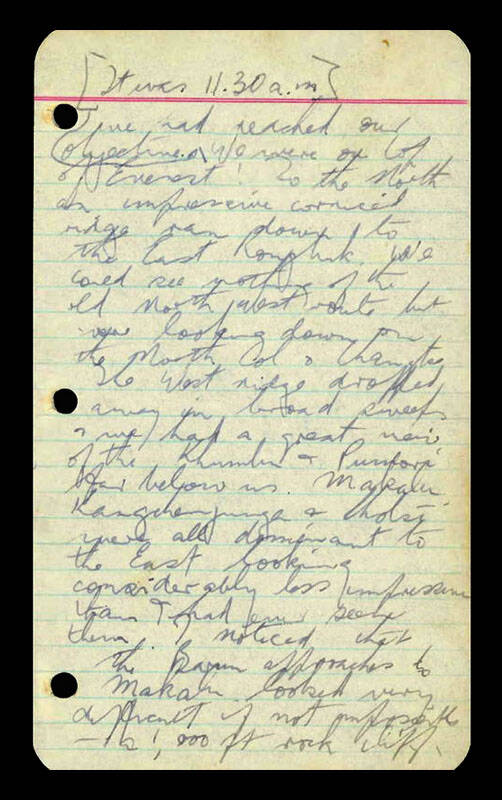 [It was 11.30 a.m.]
& we had reached our
objective. We were on top
of Everest! To the North
an impressive corniced
ridge ran down to
the East Rongbuk. We
could see nothing of the
old North West route but
were looking down on
the North Col & Changtse
The West ridge dropped
away in broad sweeps
& we had a great view
of the Khumbu & Pumori
far below us. Makalu
Kangchenjunga & Lhotse
were all dominant to
the East looking
considerably less impressive
than I had ever seen
them. I noticed that
the Barun approaches to
Makalu looked very
difficult if not impossible
,000 ft rock cliff.